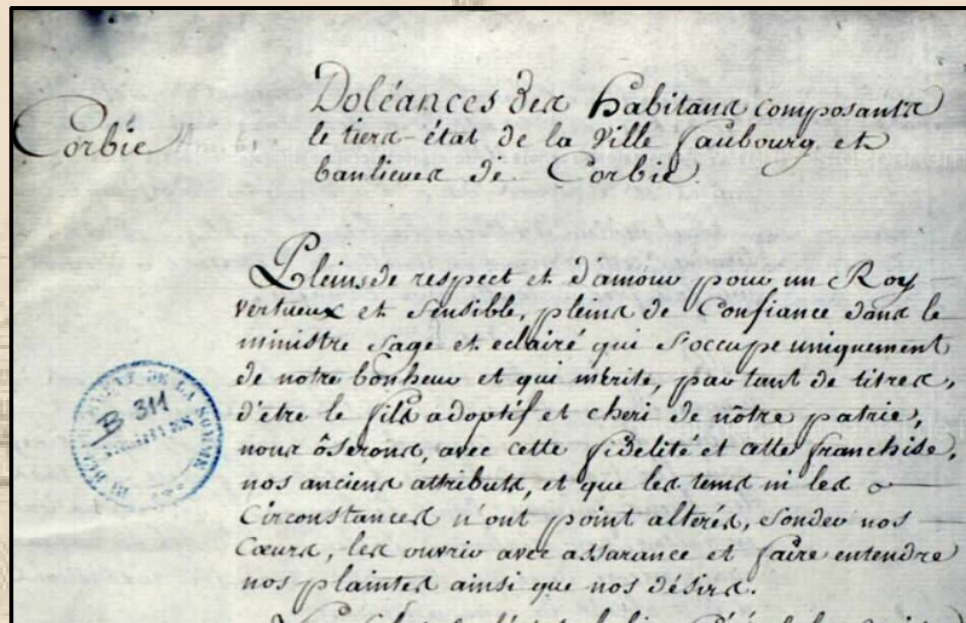 Corbie
Doléances des habitans composants
le tiers-état de la Ville faubourg et
banlieues de Corbie
Pleins de respect et d'amour pour un Roy
vertueux et sensible, pleins de Confiance dans le
ministre sage et eclairé qui s'occupe uniquement
de notre bonheur et qui mérite, par tant de titres,
d'etre le fils adoptif et cheri de nôtre patrie,
nous ôserons, avec cette fidelité et cette franchise,
nos anciens attributs, et que les tems ni les
Circonstances n'ont point altérés, sonder nos
Cœurs, les ouvrir avec assurance et faire entendre
nos plaintes ainsi que nos désirs.
DE LA SOMME
B 311